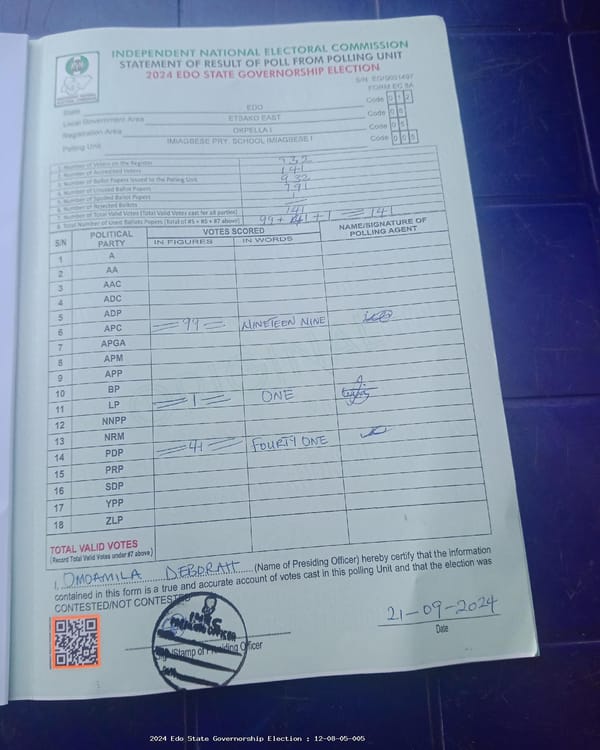 INDEPENDENT NATIONAL ELECTORAL COMMISSION
STATEMENT OF RESULT OF POLL FROM POLLING UNIT
2024 EDO STATE GOVERNORSHIP ELECTION
FORM EC 8A
State EDO Code 012
Local Government Area ETSAKO EAST Code 08
Registration Area OKPELLA I Code 05
Polling Unit IMIAGBESE PRY. SCHOOL IMIAGBESE I Code 005
1. Number of Voters on the Register 932
2. Number of Accredited Voters 141
3. Number of Ballot Papers Issued to the Polling Unit 932
4. Number of Unused Ballot Papers 791
5. Number of Spoiled Ballot Papers
6. Number of Rejected Ballots
7. Number of Total Valid Votes (Total Valid Votes cast for all parties) 141
8. Total Number of Used Ballots Papers (Total of #5 + #6 + #7 above) 99 + 41 + 1 = 141
S/N POLITICAL PARTY VOTES SCORED NAME/SIGNATURE OF POLLING AGENT
IN FIGURES IN WORDS
1 A
2 AA
3 AAC
4 ADC
5 ADP
6 APC 99 NINETEEN NINE
7 APGA
8 APM
9 APP
10 BP
11 LP 1 ONE
12 NNPP
13 NRM
14 PDP 41 FOURTY ONE
15 PRP
16 SDP
17 YPP
18 ZLP
TOTAL VALID VOTES
(Record Total Valid Votes under #7 above)
I, OMOAMILA DEBORAH (Name of Presiding Officer) hereby certify that the information
contained in this form is a true and accurate account of votes cast in this polling Unit and that the election was
CONTESTED/NOT CONTESTED
21-09-2024
Date
/Stamp of Presiding Officer
2024 Edo State Governorship Election : 12-08-05-005